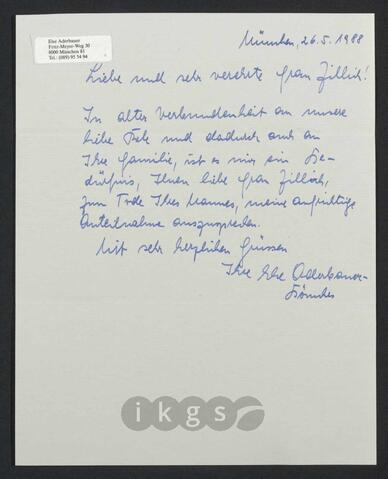 Else Aderbauer
Fritz-Meyer-Weg 30
8000 München 81
Tel.: (089) 95 54 94
München, 26.5.1988
Liebe und sehr verehrte Frau Zillich!
In alter Verbundenheit an unsere
liebe und dadurch auch an
Ihre Familie, ist es mir ein Be-
dürfnis, Ihnen liebe Frau Zillich,
zum Tode Ihres Mannes, meine aufrichtige
Anteilnahme auszusprechen.
Mit sehr herzlichen Grüssen
Ihre Else Aderbauer-
ikgs